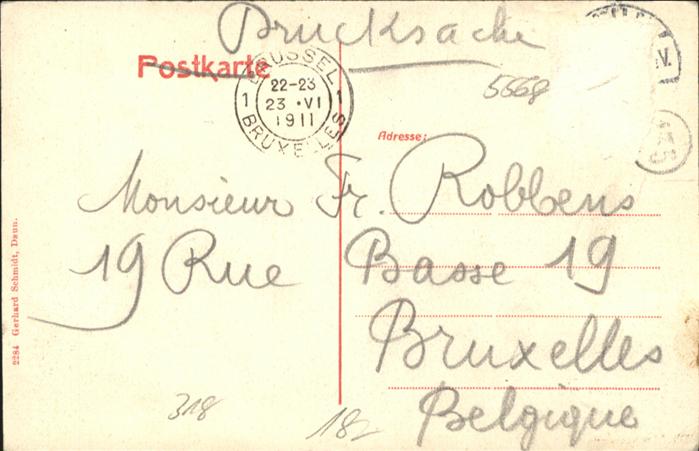 Drucksache
Postkarte
BRUSSEL
1 22-23 1
23 ·VI
1911
BRUXELLES
N.
5668
Adresse:
Monsieur Fr. Robbens
19 Rue Basse 19
Bruxelles
Belgique
2284 Gerhard Schmidt, Daun.
318
182